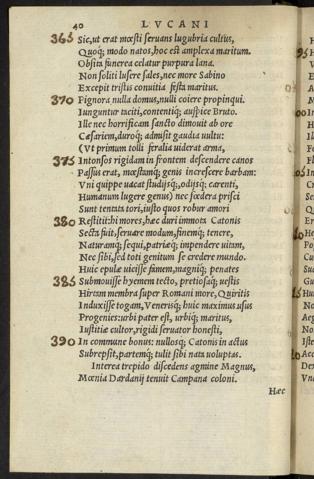 40 LVCANI
365 Sic, ut erat mœsti seruans lugubria cultus,
Quoq́; modo natos, hoc est amplexa maritum.
Obsita funerea celatur purpura lana.
Non soliti lusere sales, nec more Sabino
Excepit tristis conuitia festa maritus.
370 Pignora nulla domus, nulli coiere propinqui.
Iunguntur taciti, contentiq́; auspice Bruto.
Ille nec horrificam sancto dimouit ab ore
Cæsariem, duroq́; admisit gaudia uultu:
(Vt primum tolli feralia uiderat arma,
375 Intonsos rigidam in frontem descendere canos
Passus erat, mœstamq́; genis increscere barbam:
Vni quippe uacat studijsq́;, odijsq́; carenti,
Humanum lugere genus) nec fœdera prisci
Sunt tentata tori, iusto quoq́; robur amori
380 Restitit: hi mores, hæc duri immota Catonis
Secta fuit, seruare modum, finemq́; tenere,
Naturamq́; sequi, patriæq́; impendere uitam,
Nec sibi, sed toti genitum se credere mundo.
Huic epulæ uicisse famem, magniq́; penates
385 Submouisse hyemem tecto, pretiosaq́; uestis
Hirtam membra super Romani more, Quiritis
Induxisse togam, Venerisq́; huic maximus usus
Progenies: urbi pater est, urbiq́; maritus,
Iustitiæ cultor, rigidi seruator honesti,
390 In commune bonus: nullosq́; Catonis in actus
Subrepsit, partemq́; tulit sibi nata uoluptas.
Interea trepido discedens agmine Magnus,
Mœnia Dardanij tenuit Campana coloni.
Hæc